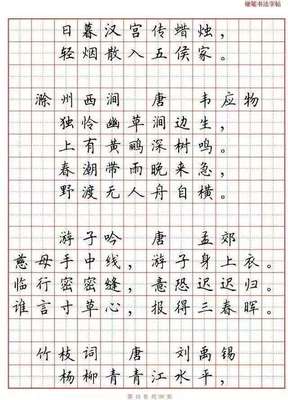 硬笔书法字帖
日暮汉宫传蜡烛，
轻烟散入五侯家。
滁州西涧 唐 韦应物
独怜幽草涧边生，
上有黄鹂深树鸣。
春潮带雨晚来急，
野渡无人舟自横。
游子吟 唐 孟郊
慈母手中线，游子身上衣。
临行密密缝，意恐迟迟归。
谁言寸草心，报得三春晖。
竹枝词 唐 刘禹锡
杨柳青青江水平，